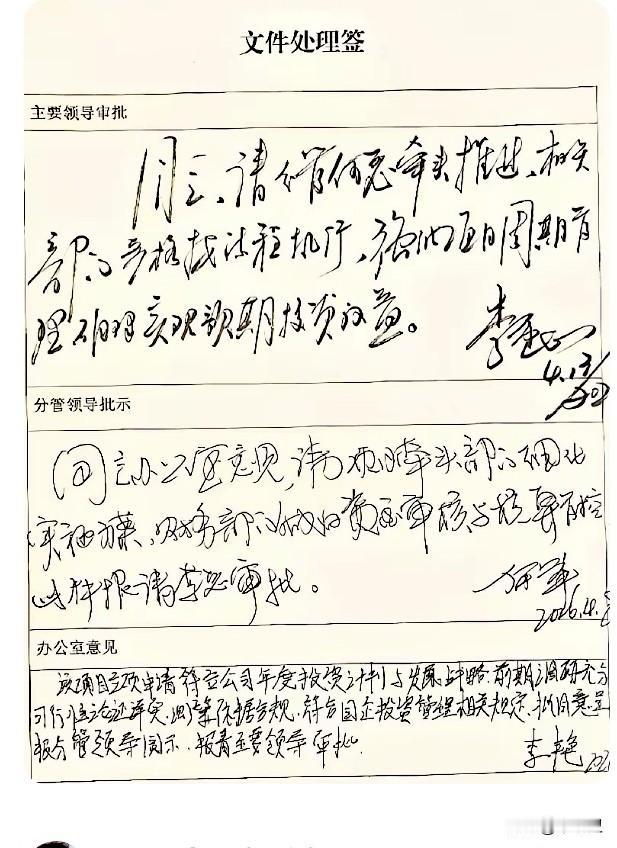 文件处理签
主要领导审批
同意，请分管何总牵头推进，相关
部门严格按流程执行，强化项目周期管
理 确保实现预期投资效益。
李
4.13
分管领导批示
同意办公室意见，请项目牵头部门细化
实施方案，财务部门做好资金审核与预算管控
此件报请李总审批。
何军
2026.4.
办公室意见
该项目立项申请符合公司年度投资计划与发展战略，前期调研充分
可行性论证详实，财务依据合规，符合国企投资管理相关规定，拟同意呈
报分管领导阅示，报请主要领导审批.
李艳
202